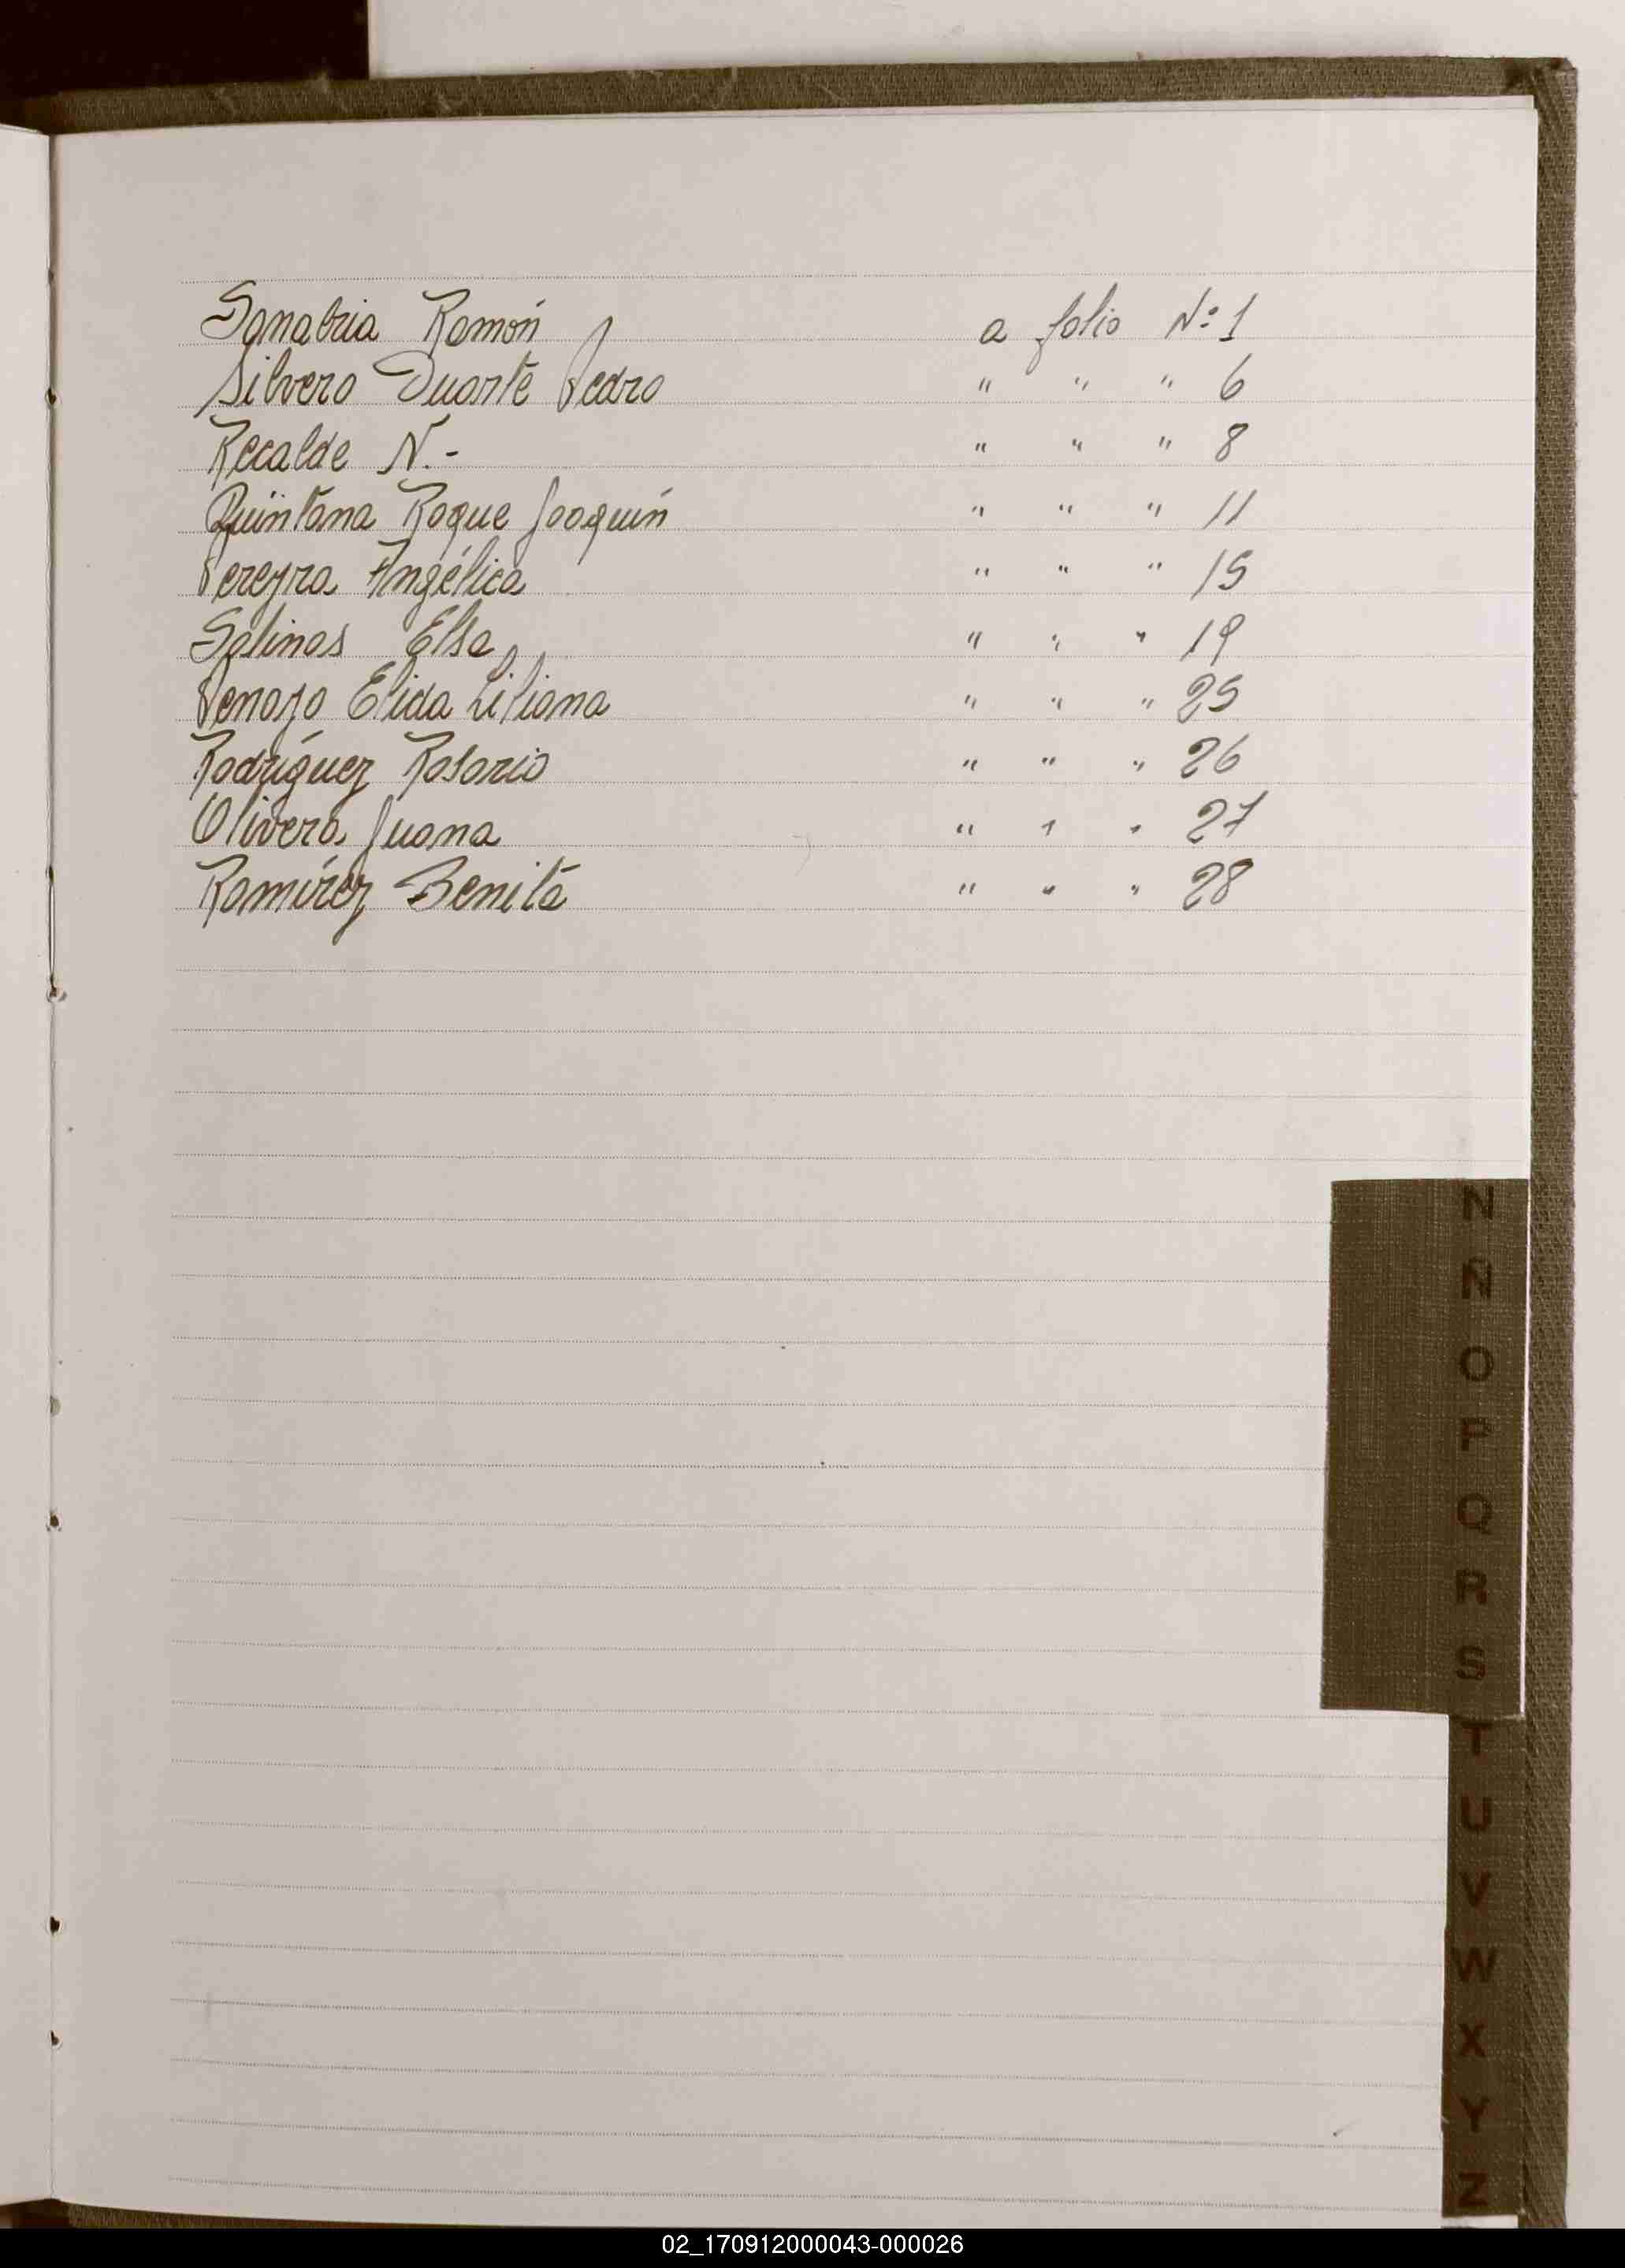 Sanabria Ramón a folio Nº 1
Silvero Duarte Pedro " " " 6
Recalde N.- " " " 8
Quintana Roque Joaquín " " " 11
Pereyra Angélica " " " 15
Salinas Elsa " " " 19
Penayo Elida Liliana " " " 25
Rodríguez Rosario " " " 26
Olivera Juana " " " 27
Ramírez Benita " " " 28
N
Ñ
O
P
Q
R
S
T
U
V
W
X
Y
Z
02_170912000043-000026